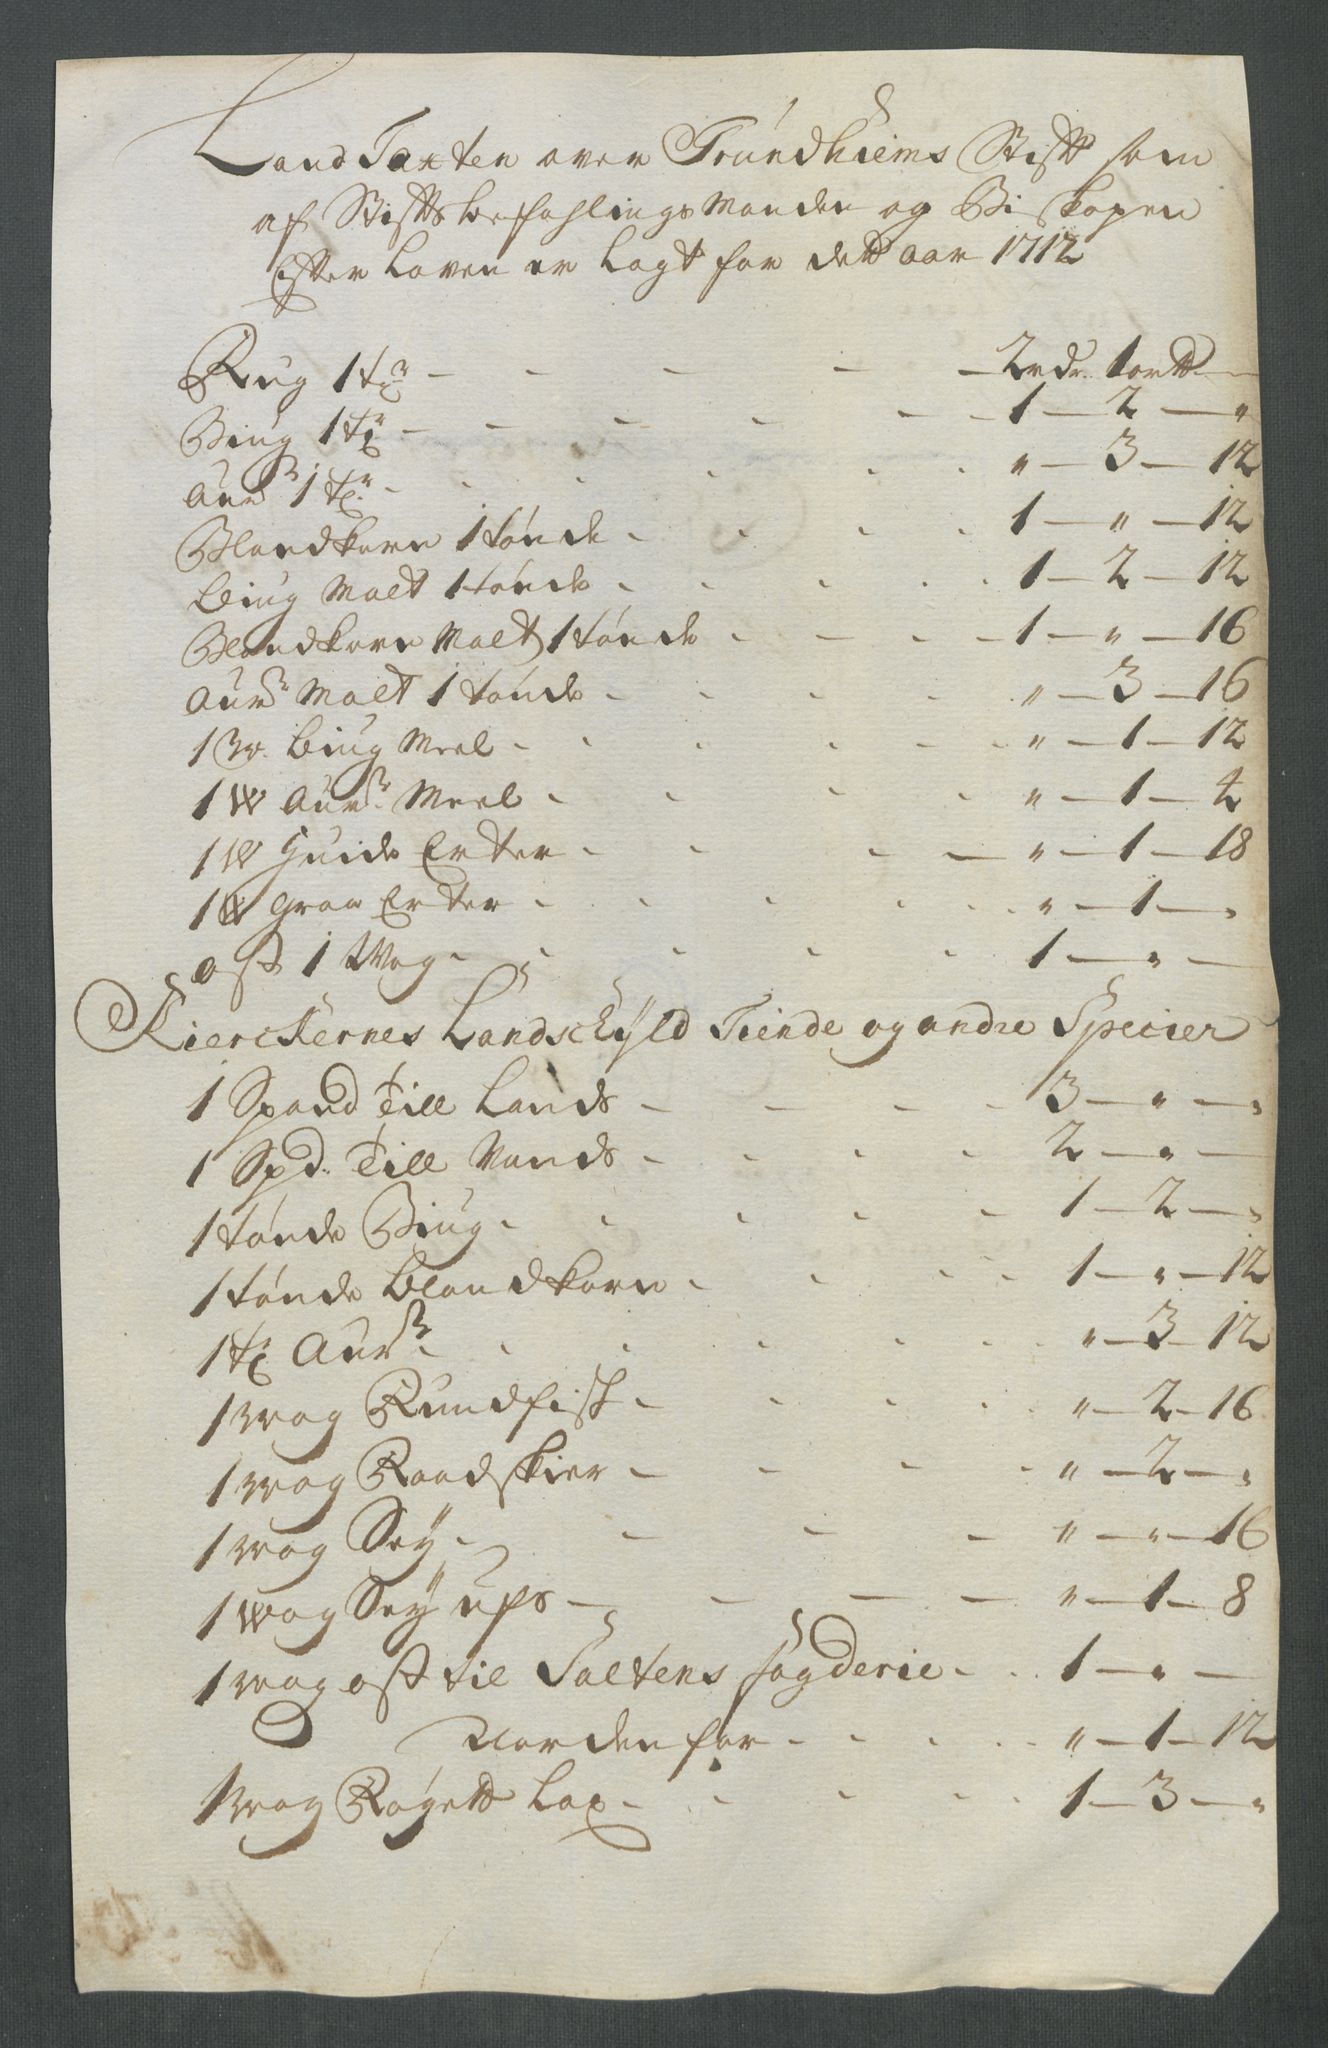 Land Taxten over Trundhiems Stift som
af Stiftsbefahlings Manden og Biskopen
Efter Loven er Lagt for dett aar 1712
Rug 1 tr - - - - 2 rdr. 1 ortt -
Biug 1 tr - - - - - - 1 - 2 - "
Aur 1 tr - - - - - " - 3 - 12
Blandkorn 1 tønde - - - - 1 - " - 12
Biug Malt 1 tønde - - - - - 1 - 2 - 12
Blandkorn Malt 1 tønde - - - - 1 - " - 16
Aur Malt 1 tønde - - - - " - 3 - 16
1 W. Biug Meel - - - - - - " - 1 - 12
1 W Aur Meel - - - - " - 1 - 4
1 W Huide Erter - - - - " - 1 - 18
1 W Graa Erter - - - - - - " - 1 - "
Ost 1 Wog - - - - - 1 - " -
Kierckernes Landschyld Tiende og andre Specier
1 Spand Till Lands - - - - 3 - " - "
1 Spd. Till Vands - - - - 2 - " -
1 tønde Biug - - - - - 1 - 2 - "
1 tønde Blandkorn - - - - 1 - " - 12
1 tr Aur - - - - - - " - 3 - 12
1 wog Rundfisk - - - - - " - 2 - 16
1 wog Raadskier - - - - " - 2 - "
1 wog Sey - - - - " - " - 16
1 wog Sey ufs - - - - " - 1 - 8
1 wog ost til Saltens fogderie - - 1 - " -
Norden for - - - - - " - 1 - 12
1 wog Røgett Lax - - - - - 1 - 3 - "